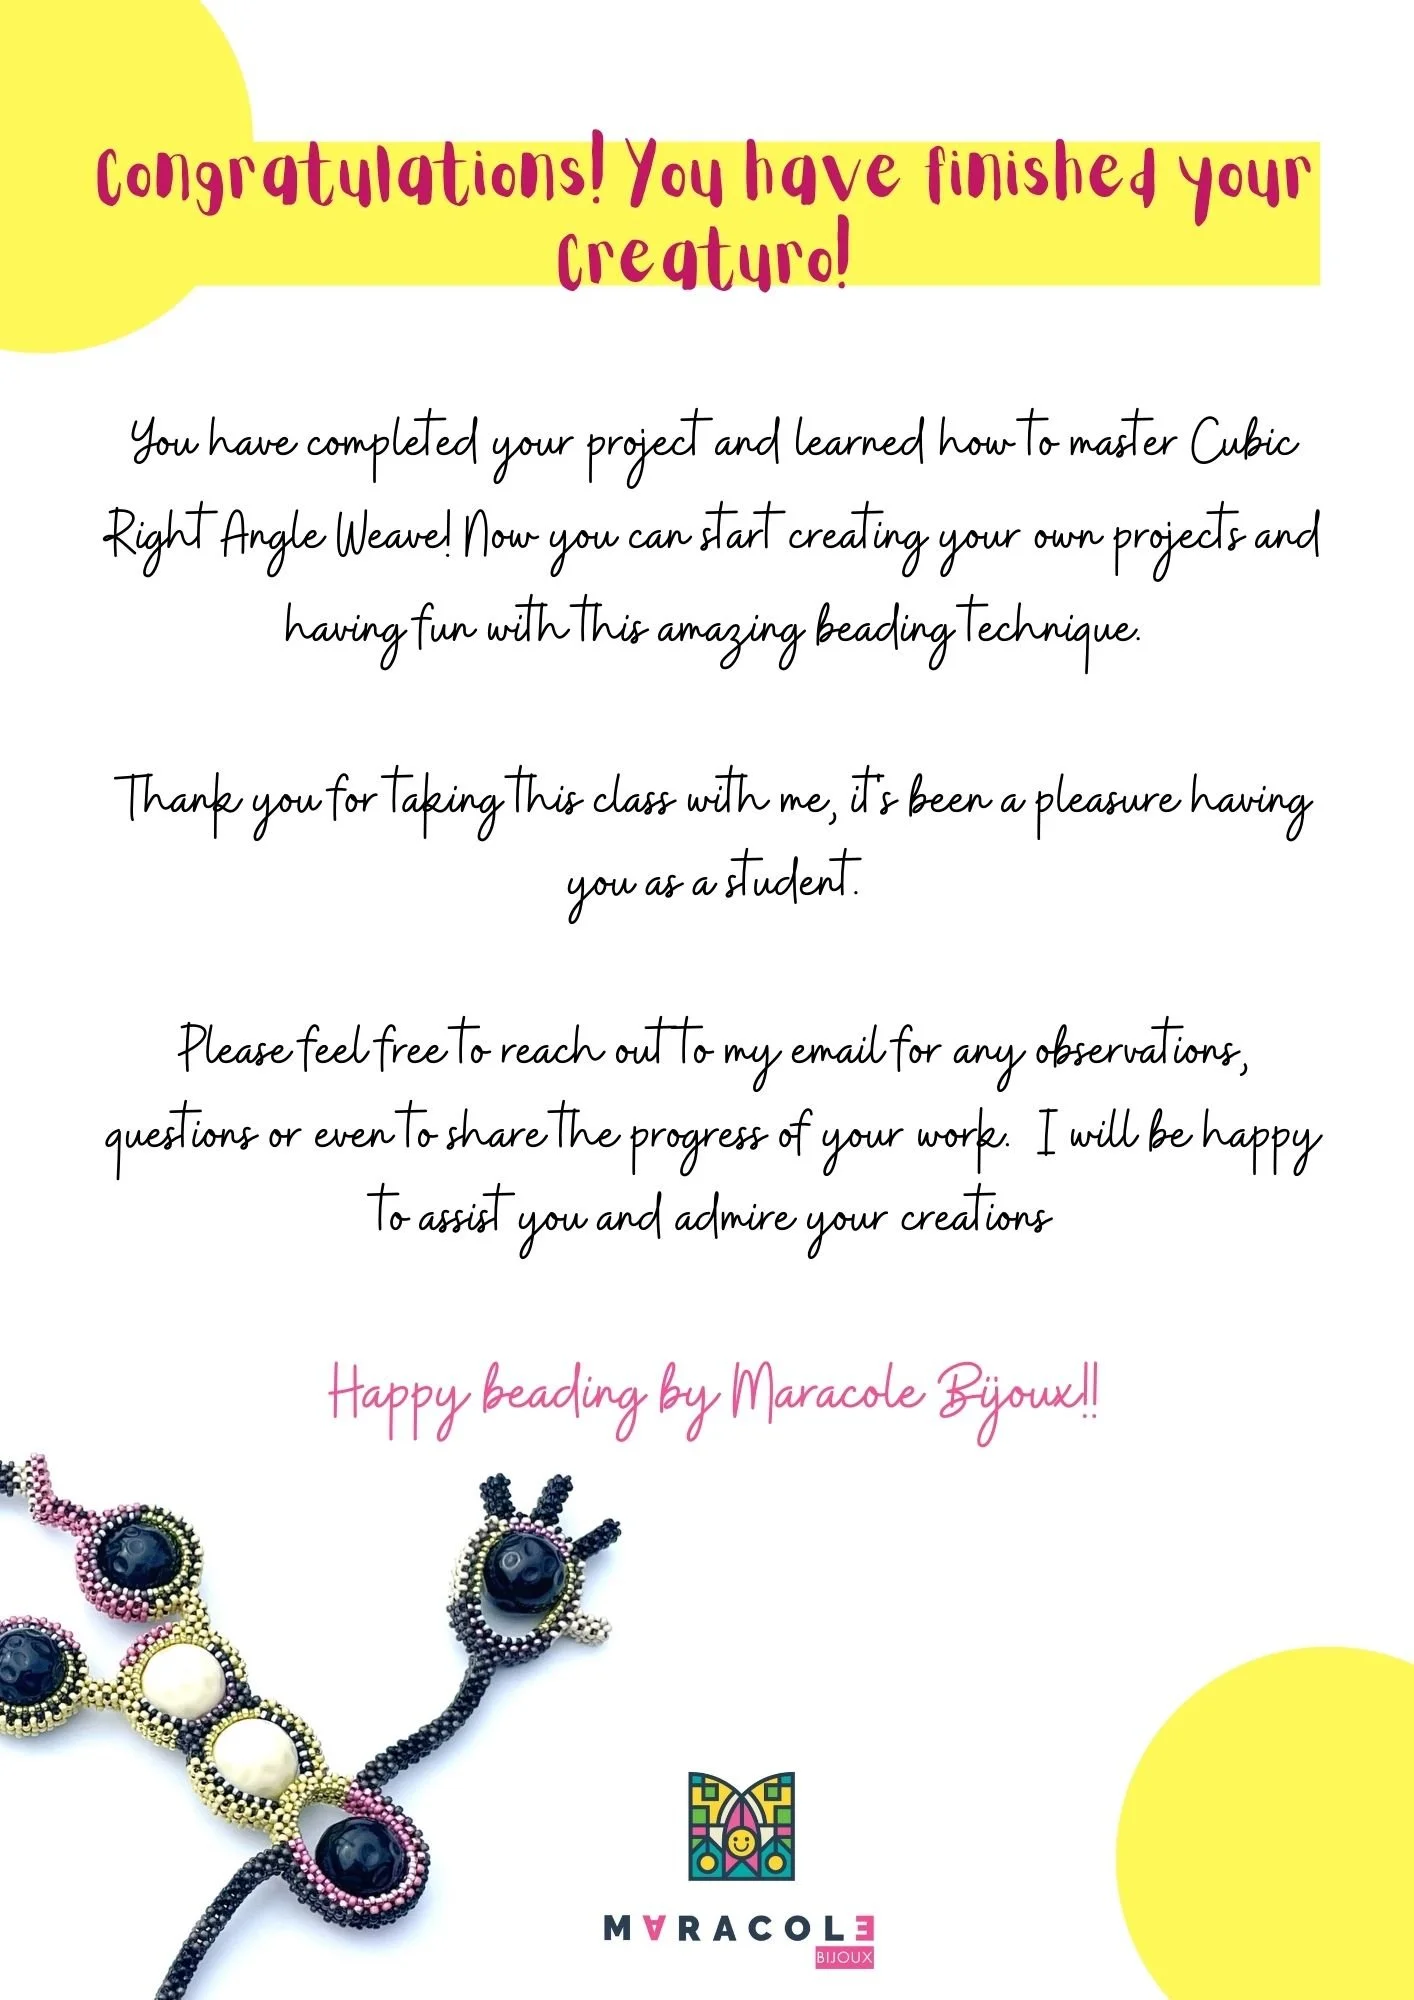 Congratulations! You have finished your
Creaturo!
You have completed your project and learned how to master Cubic
Right Angle Weave! Now you can start creating your own projects and
having fun with this amazing beading technique.
Thank you for taking this class with me, it's been a pleasure having
you as a student.
Please feel free to reach out to my email for any observations,
questions or even to share the progress of your work. I will be happy
to assist you and admire your creations
Happy beading by Maracole Bijoux!!
MARACOLE
BIJOUX